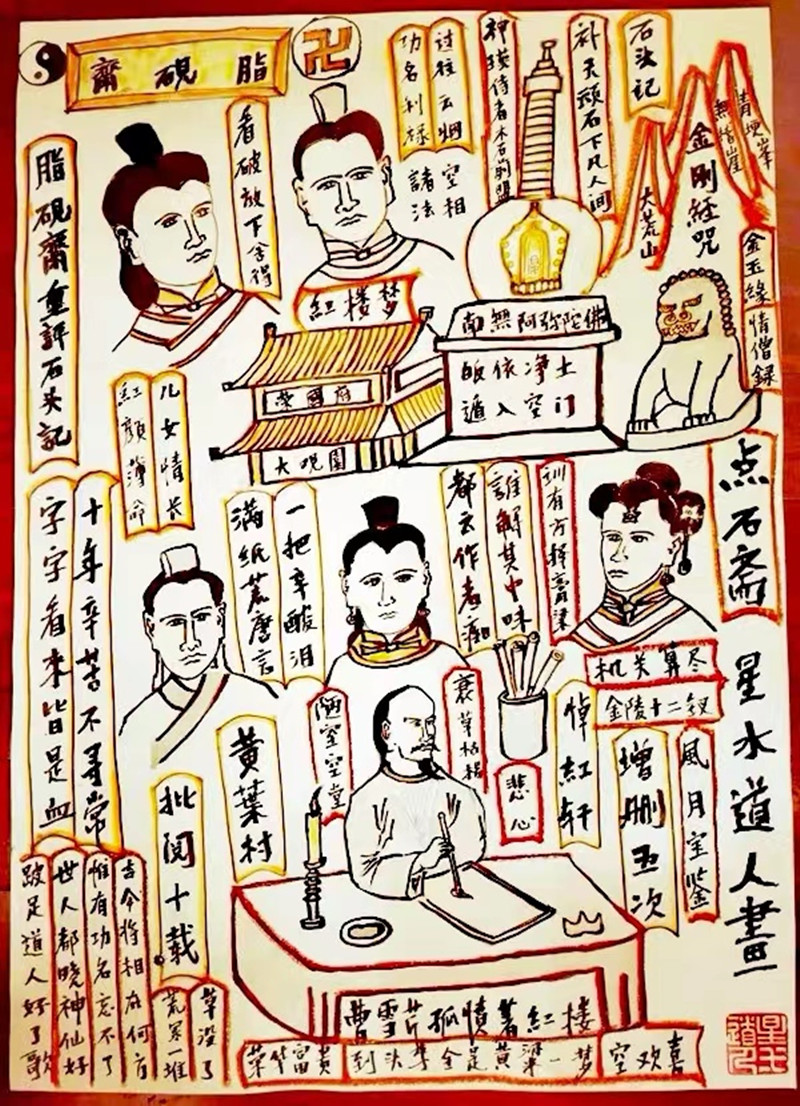 脂硯齋
卍
石头记
补天頑石下凡人间
神瑛侍者木石前盟
过往云烟
功名利禄
諸法
空相
看破放下舍得
脂硯齋重評石头記
青埂峯
無稽崖
金刚经咒
大荒山
金玉緣
情僧録
紅楼梦
榮國府
大观園
南無阿弥陀佛
皈依净土
遁入空门
儿女情长
紅顔薄命
点石斋
星水道人畫
训有方择膏粱
誰解其中味
都云作者痴
一把辛酸泪
滿纸荒唐言
十年辛苦不寻常
字字看来皆是血
机关算尽
金陵十二钗
风月宝鉴
增删五次
悼红轩
悲心
衰草枯杨
陋室空堂
黄葉村
批阅十载
跛足道人好了歌
世人都晓神仙好
惟有功名忘不了
古今将相在何方
荒冢一堆
草没了
曹雪芹孤愤著红楼
荣华富贵到头来全是黄粱一梦空欢喜